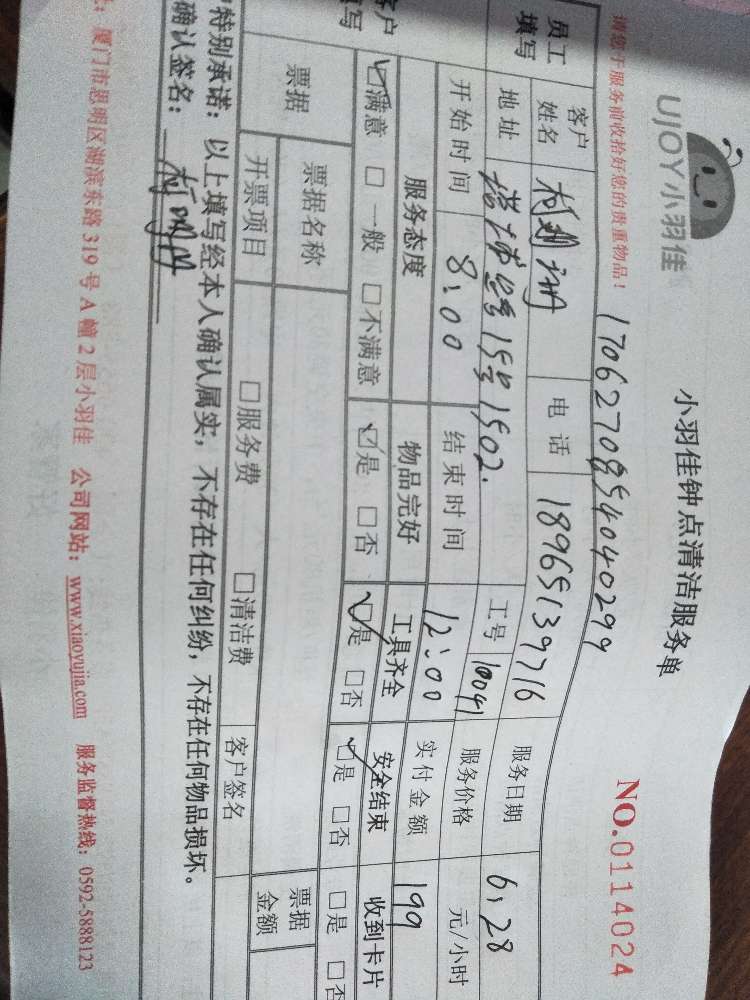 UJOY小羽佳
小羽佳钟点清洁服务单
NO.0114024
请您于服务前收拾好您的贵重物品！
1706270854040299
员工填写 客户姓名 电话 18965139716 服务日期 6.28
地址 15号1502. 工号 10041 服务价格 元/小时
开始时间 8:00 结束时间 12:00 实付金额 199
客户填写 服务态度 物品完好 工具齐全 安全结束 收到卡片
☑满意 □一般 □不满意 ☑是 □否 ☑是 □否 ☑是 □否 □是 □否
票据 票据名称 票据金额
开票项目 □服务费 □清洁费 客户签名
特别承诺：以上填写经本人确认属实，不存在任何纠纷，不存在任何物品损坏。
确认签名：
厦门市思明区湖滨东路319号A幢2层小羽佳 公司网站：www.xiaoyujia.com 服务监督热线：0592-5888123